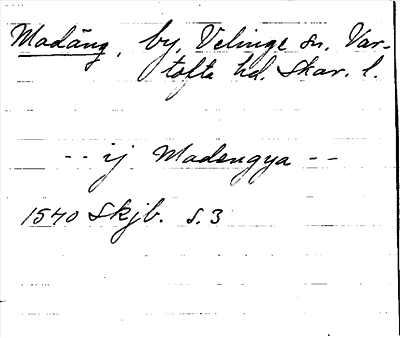 Madäng, by, Velinge sn. Var-
tofta hd. Skar. l.
-- ij Madengya --
1540 Skjb. s. 3